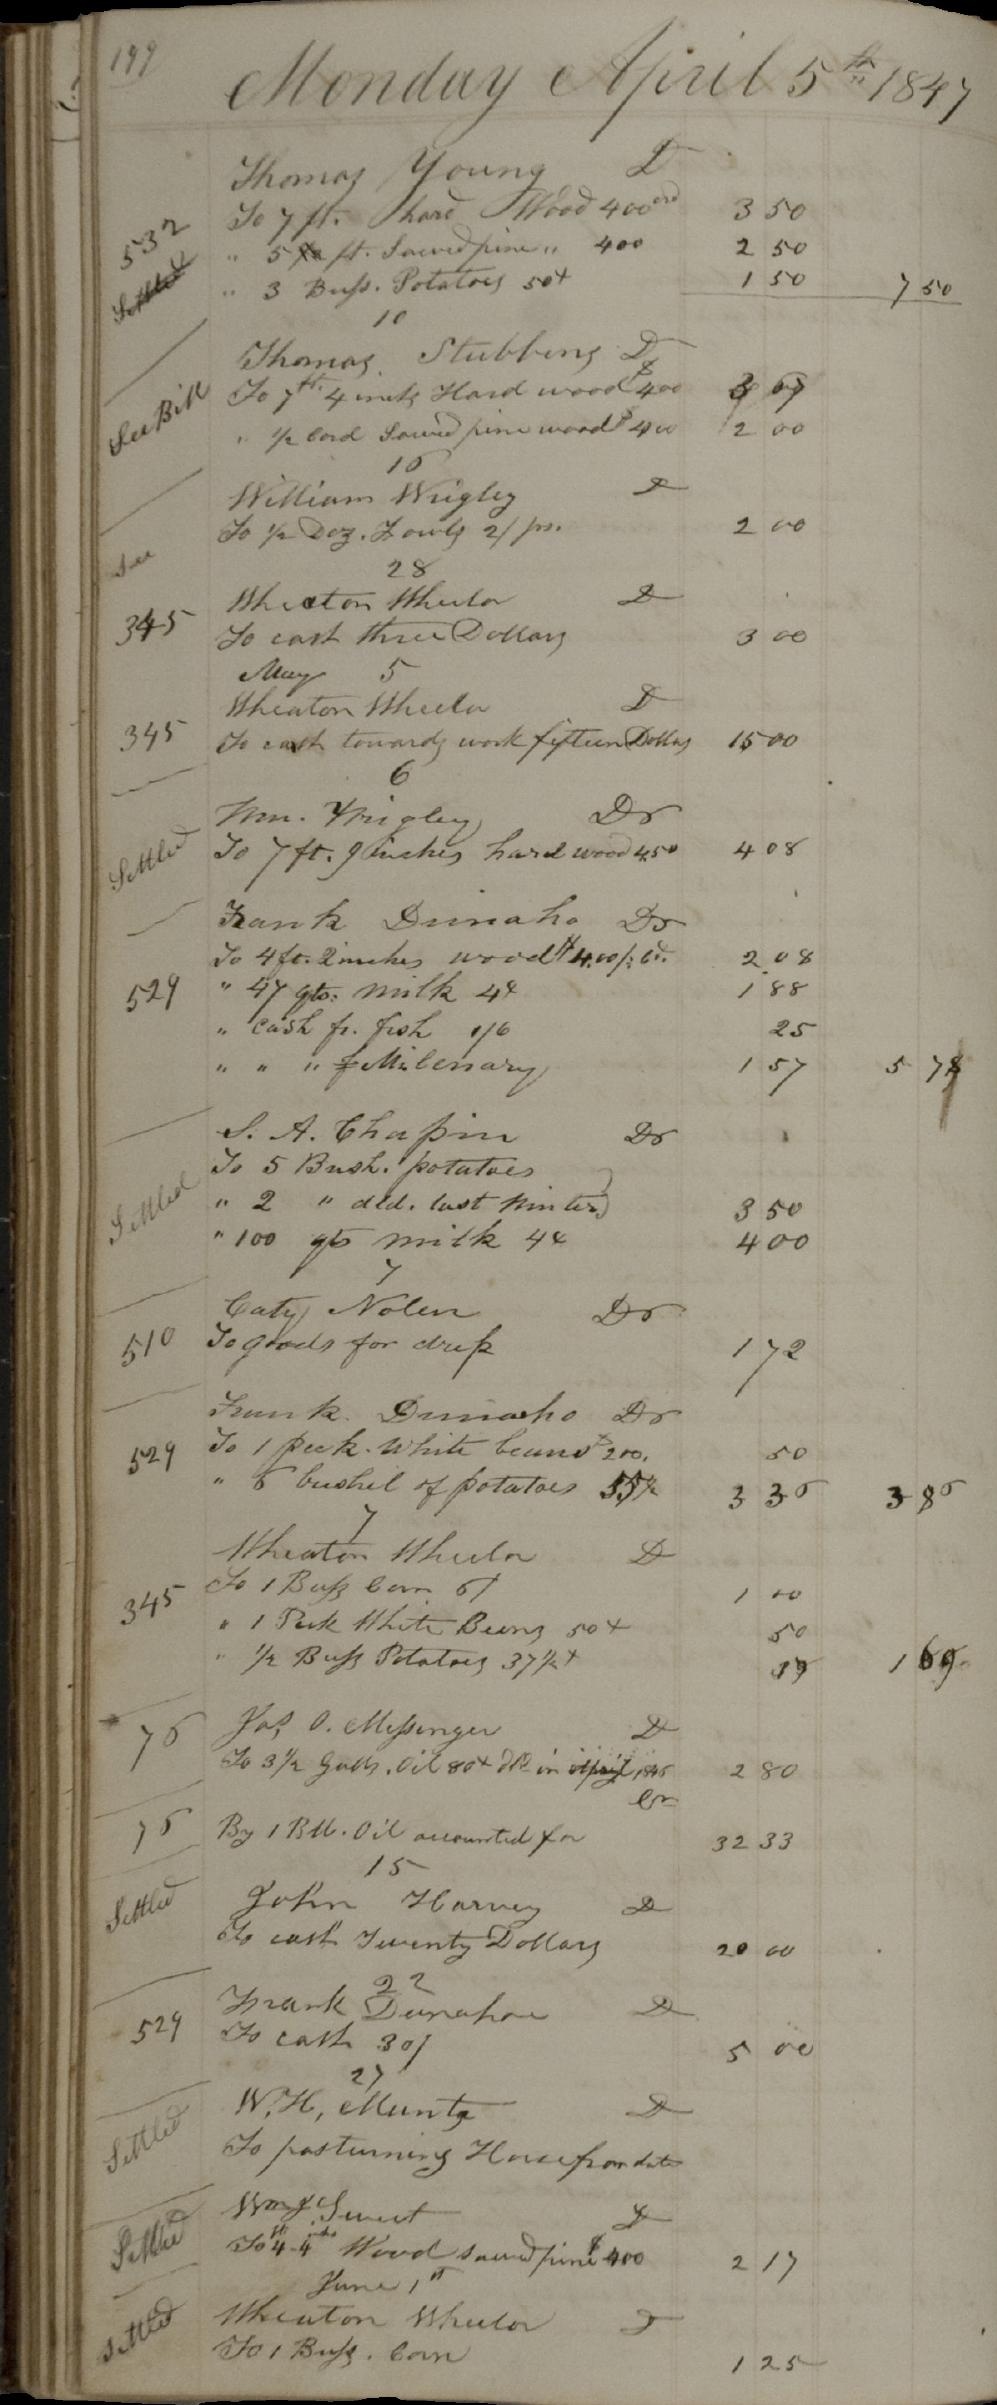 199
Monday April 5th 1847
Thomas Young D
532 To 7 ft. hard Wood 400
" 5 ft. Sawed pine " 400 2 50
3 50
Settled " 3 Buss. Potatoes 50¢ 1 50 7 50
10
Thomas Stubbins D
See Bill To 7ft 4 inch Hard wood $400 3 67
" 1/2 Cord Sawed pine wood $400 2 00
16
William Wrigley D
To 1/2 Doz. Fowls 2/ pr. 2 00
28
Wheaton Wheelor D
345 To cash three Dollars 3 00
May 5
Wheaton Wheelor D
345 To cash towards work fifteen Dollars 15 00
6
Wm. Wrigley Dr
Settled To 7 ft. 9 inches hard wood 4.50 4 08
Frank Dunaho Dr
To 4 ft. 2 inches wood $4.00 2 08
529 " 47 qts. milk 4¢ 1 88
" cash fr. fish 1/6 25
" " " Milenary 1 57 5 78
S. A. Chapin Dr
To 5 Bush. potatoes
Settled " 2 " dld. last Winter 3 50
" 100 qts milk 4¢ 4 00
7
Caty Nolen Dr
510 To goods for dress 1 72
Frank Dunaho Dr
529 To 1 peck. White beans $2.00. 50
" 6 bushel of potatoes 3 36 3 86
7
Wheaton Wheelor D
345 To 1 Buss Corn 6/ 1 00
" 1 Peck White Beans 50¢ 50
" 1/2 Buss Potatoes 37 1/2¢ 19 1 69
76 Jas. O. Messinger D
To 3 1/2 Galls. Oil 80¢ dld in April 1846 2 80
Cr
76 By 1 Bbl. Oil accounted for 32 33
15
Settled John Harvey D
To cash Twenty Dollars 20 00
22
Frank Dunahoe D
529 To cash 30/ 5 00
27
W. H. Muntz D
Settled To pasturning Horse from date
Wm J Sweet D
Settled To 4ft 4 Wood sawed pine $400 2 17
June 1st
Wheaton Wheelor D
Settled To 1 Buss. Corn 1 25